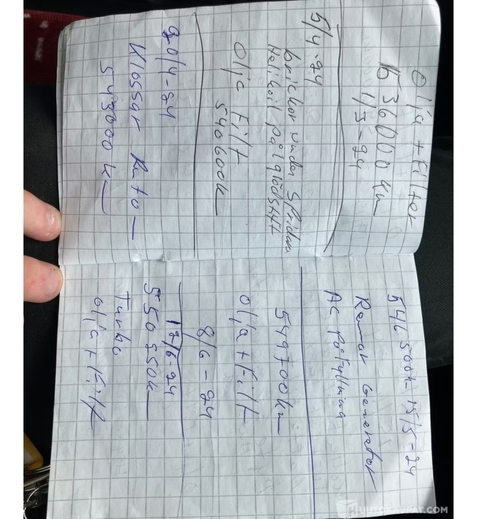 Olja + Filter
536000 km
1/3-24
5/4-24
brickor under Spridare
Helikoil på glödstift
Olja Filt
540600k
20/4-24
Klossar Runtom
543000k
546500k 15/5-24
Remar Generator
AC påfyllning
549700km
olja + Filt
8/6-24
18/6-24
550350k
Turbo
olja + Filt